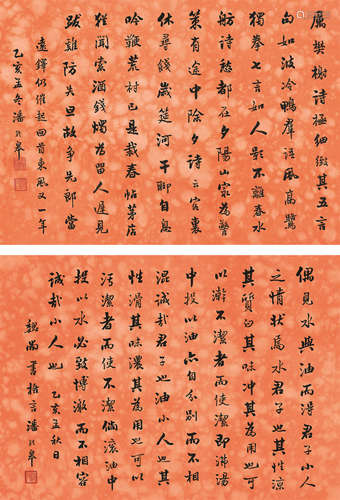 厲樊榭詩極細緻其五言
句如波冷鴨羣語風高鷺
獨拳七言如人影不離春水
舫詩愁都在夕陽山家為警
策有途中除夕詩云客裏
休尋餞歲筵河干聊自息
吟鞭荒村已是裁春帖茅店
猶聞索酒錢燭為留人遲見
跋雞防失旦故爭先郎當
遠鐸仍催起回首東風又一年
乙亥孟冬潘齡皋
偶見水與油而得君子小人
之情狀焉水君子也其性涼
其質白其味沖其為用也可
以澣不潔者而使潔即沸湯
中投以油亦自分別而不相
混誠哉君子也油小人也其
性滑其味濃其為用也可以
污潔者而使不潔倘滾油中
投以水必致搏激而不相容
誠哉小人也 乙亥孟秋日
魏尚書格言潘齡皋